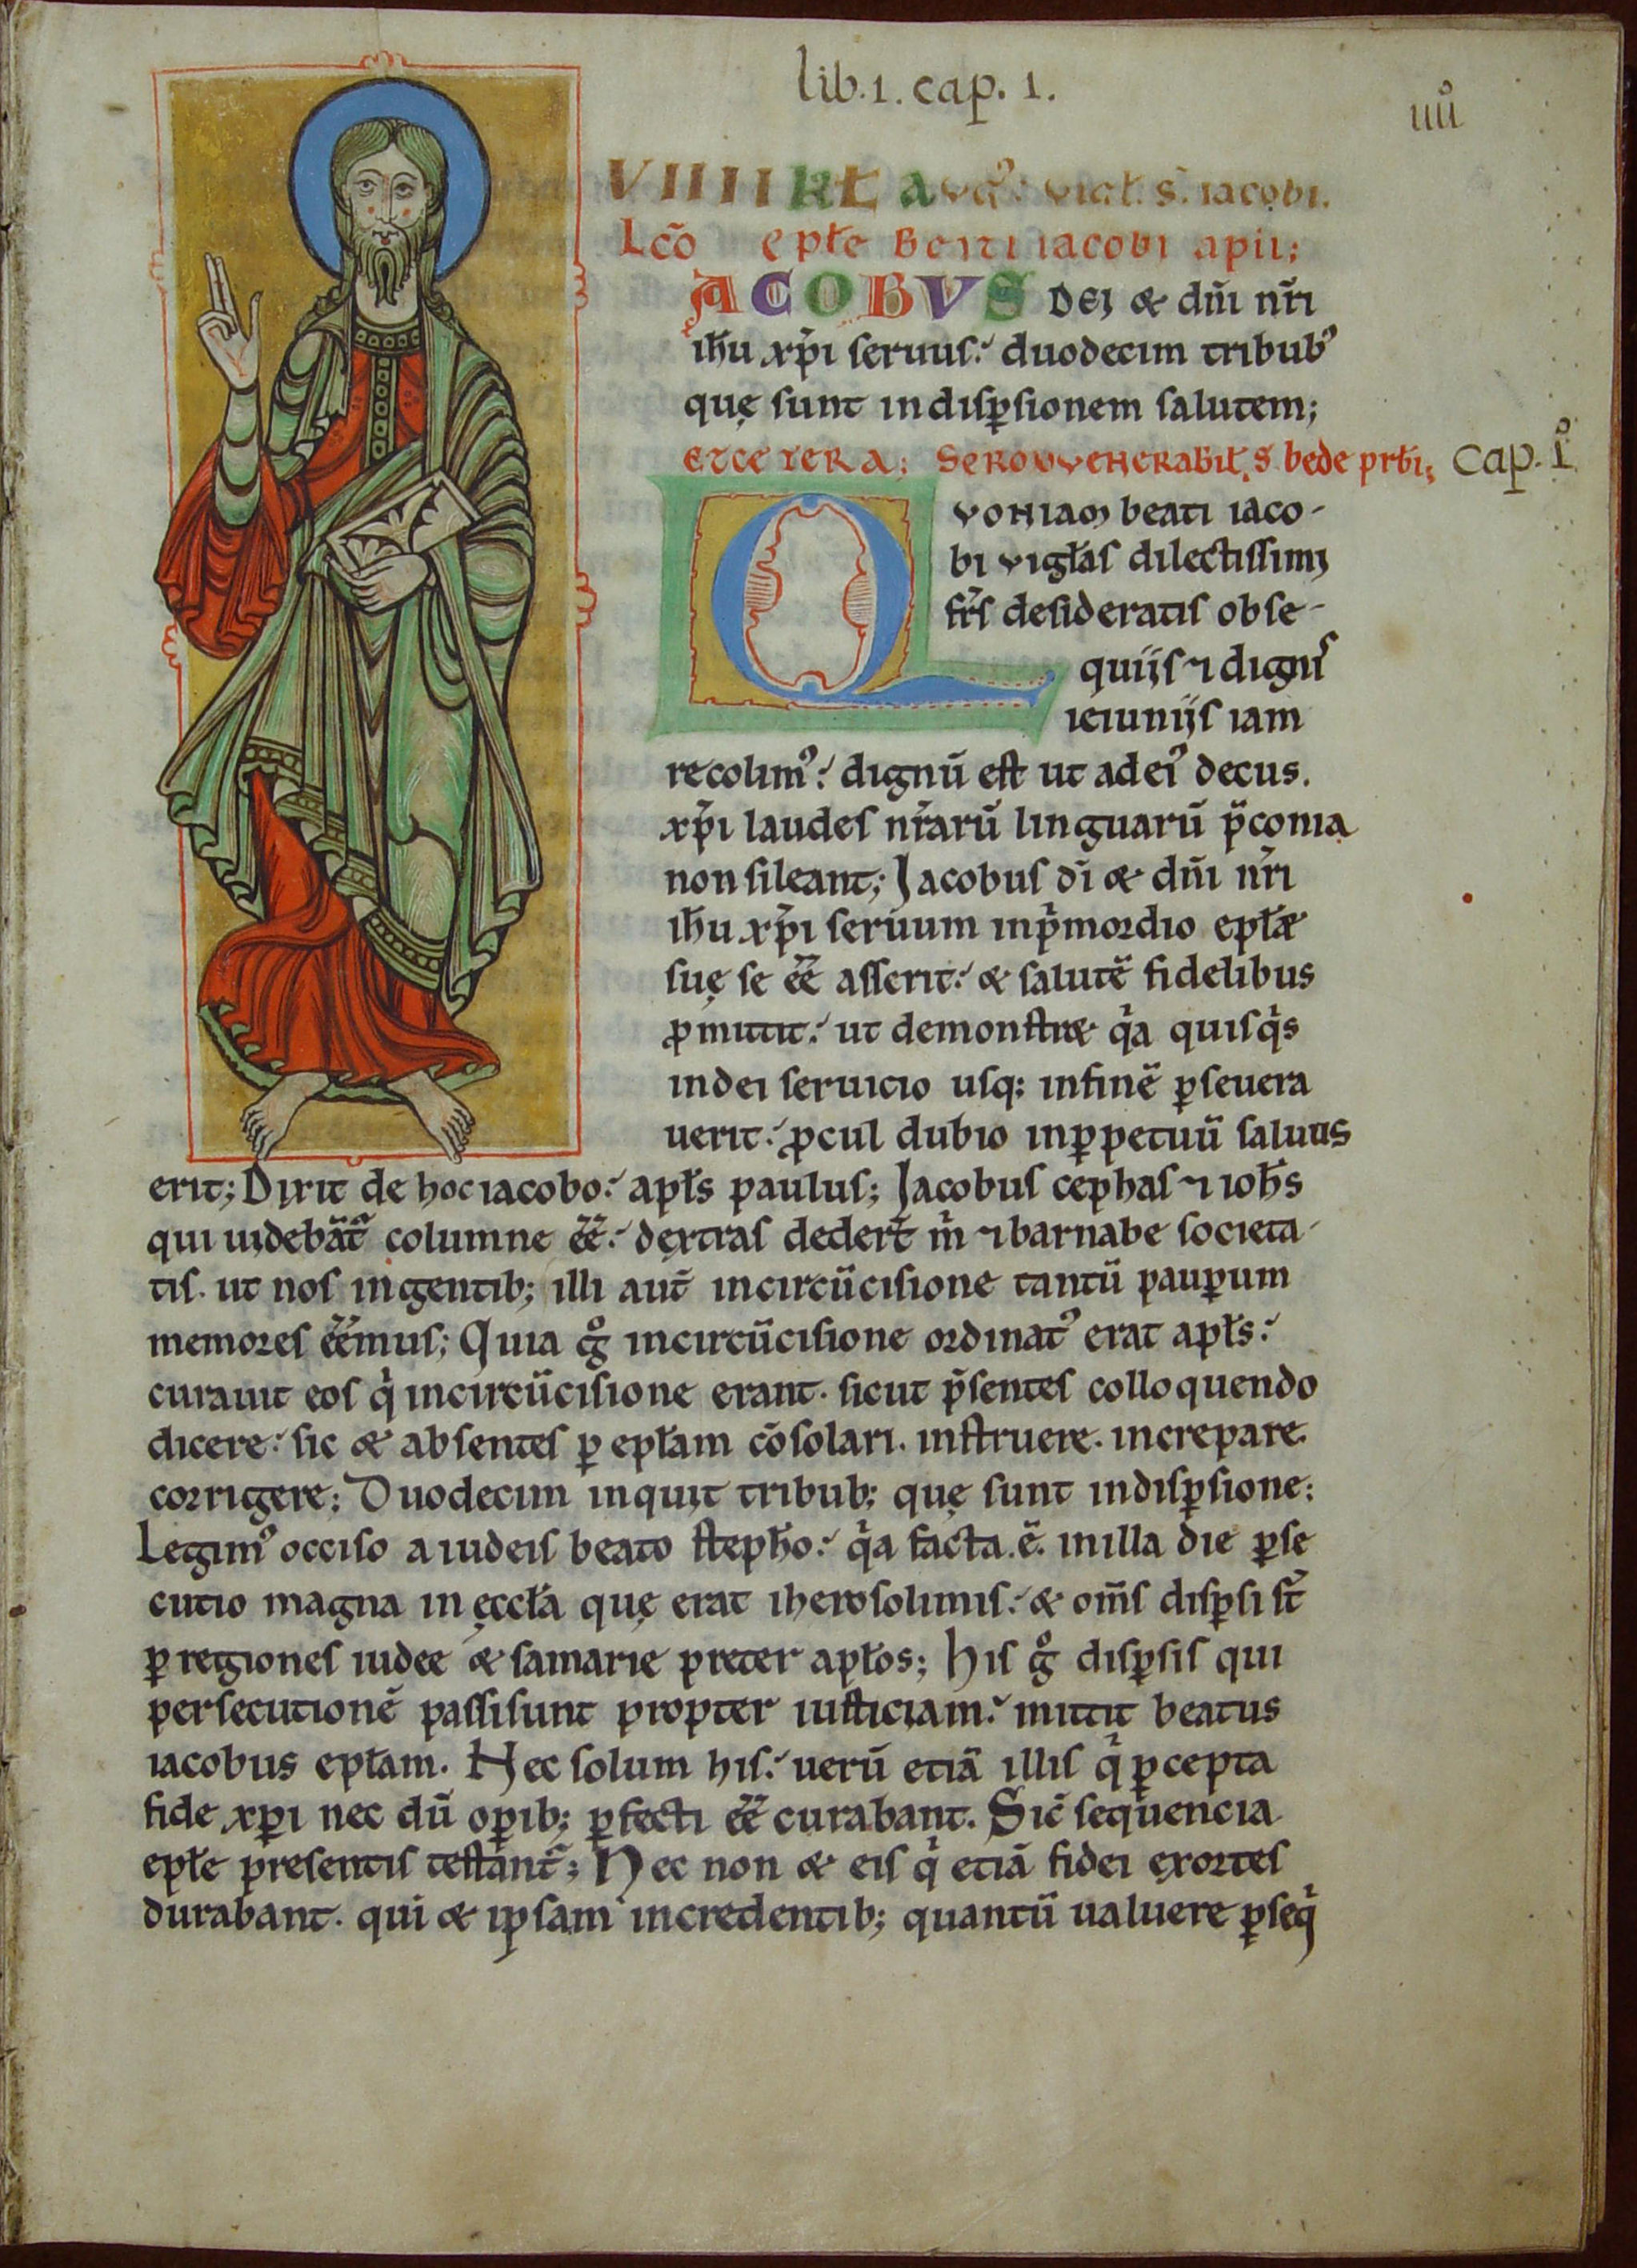 lib. 1. cap. 1.
iiii°
VIIII kł aug᾿: vigł. s̄. iacobi.
Lc̄o epłe Beati iacobi apłi;
IACOBVS DEI & dn̄i nr̄i
ih̄u xp̄i seruus. duodecim tribub᾿
quę sunt indisꝑsionem salutem;
ETCETERA; SERMO VENERABIŁ. S. bede prb̄i; cap. i°
QVONIAM beati iaco-
bi vigłas dilectissimi
fr̄s desideratis obse-
quiis ⁊ dignis
ieiuniis iam
recolim᾿. dignū est ut ad ei᾿ decus.
xp̄i laudes nr̄arū linguarū p̄conia
non sileant; Jacobus dī & dn̄i nr̄i
ih̄u xp̄i seruum inpͥmordio epłae
suę se ēē asserit. & salutē fidelibus
ꝓmittit. ut demonstr& qͥa quisqͥs
indei seruicio usq; infinē ꝑseuera
uerit. ꝓcul dubio inꝑpetuū saluus
erit; Dixit de hoc iacobo. apłs paulus; Jacobus cephas ⁊ ioh̄s
qui uidebant᾿ columne ēē. dextras dedert̄ mͥ ⁊ barnabe societa-
tis. ut nos ingentib; illi aut̄ incircūcisione tantū pauꝑum
memores ēēmus; Quia g° incircūcisione ordinat᾿ erat apłs.
curauit eos qͥ incircūcisione erant. sicut p̄sentes colloquendo
dicere. sic & absentes ꝑ epłam cōsolari. instruere. increpare.
corrigere; Duodecim inquit tribub; quę sunt indisꝑsione;
Legim᾿ occiso a iudeis beato steph̄o. qͥa facta. ē. inilla die ꝑse
cutio magna in ęccła quę erat iherosolimis. & om̄s disꝑsi st̄
ꝑ regiones iudee & samarie preter apłos; His g° disꝑsis qui
persecutionē passisunt propter iusticiam. mittit beatus
iacobus epłam. Nec solum his. uerū etiā illis qͥ ꝑcepta
fide xp̄i nec dū oꝑib; ꝑfecti ēē curabant. Sic̄ sequencia
epłe presentis testant᾿; Nec non & eis qͥ etiā fidei exortes
durabant. qui & ipsam incredentib; quantū ualuere ꝑseqͥ